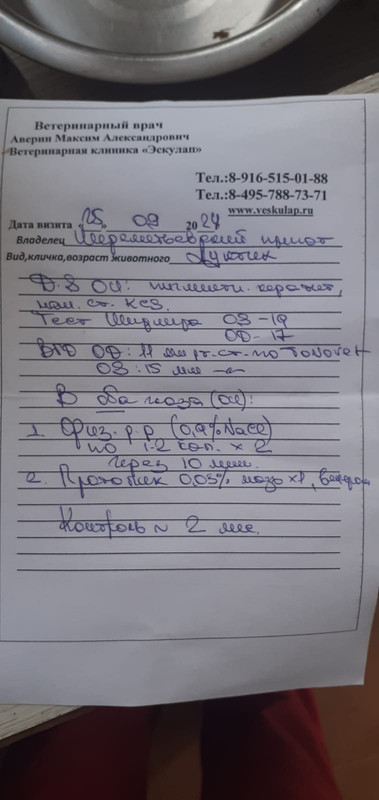 Ветеринарный врач
Аверин Максим Александрович
Ветеринарная клиника «Эскулап»
Тел.:8-916-515-01-88
Тел.:8-495-788-73-71
www.veskulap.ru
Дата визита «25» 09 2024
Владелец Шереметьевский приют
Вид,кличка,возраст животного
D.S OU: пигментн. кератит,
нач. ст. KCS.
Тест Ширмера OS-19
OD-17
ВГД OD: 11 мм рт.ст. по Tonovet
OS: 15 мм
В оба глаза (OU):
1. Физ. р-р (0,9% NaCl)
по 1-2 кап. x 2
Через 10 мин.
2. Протопик 0,03% мазь x1, вечером
Контроль ~ 2 мес.